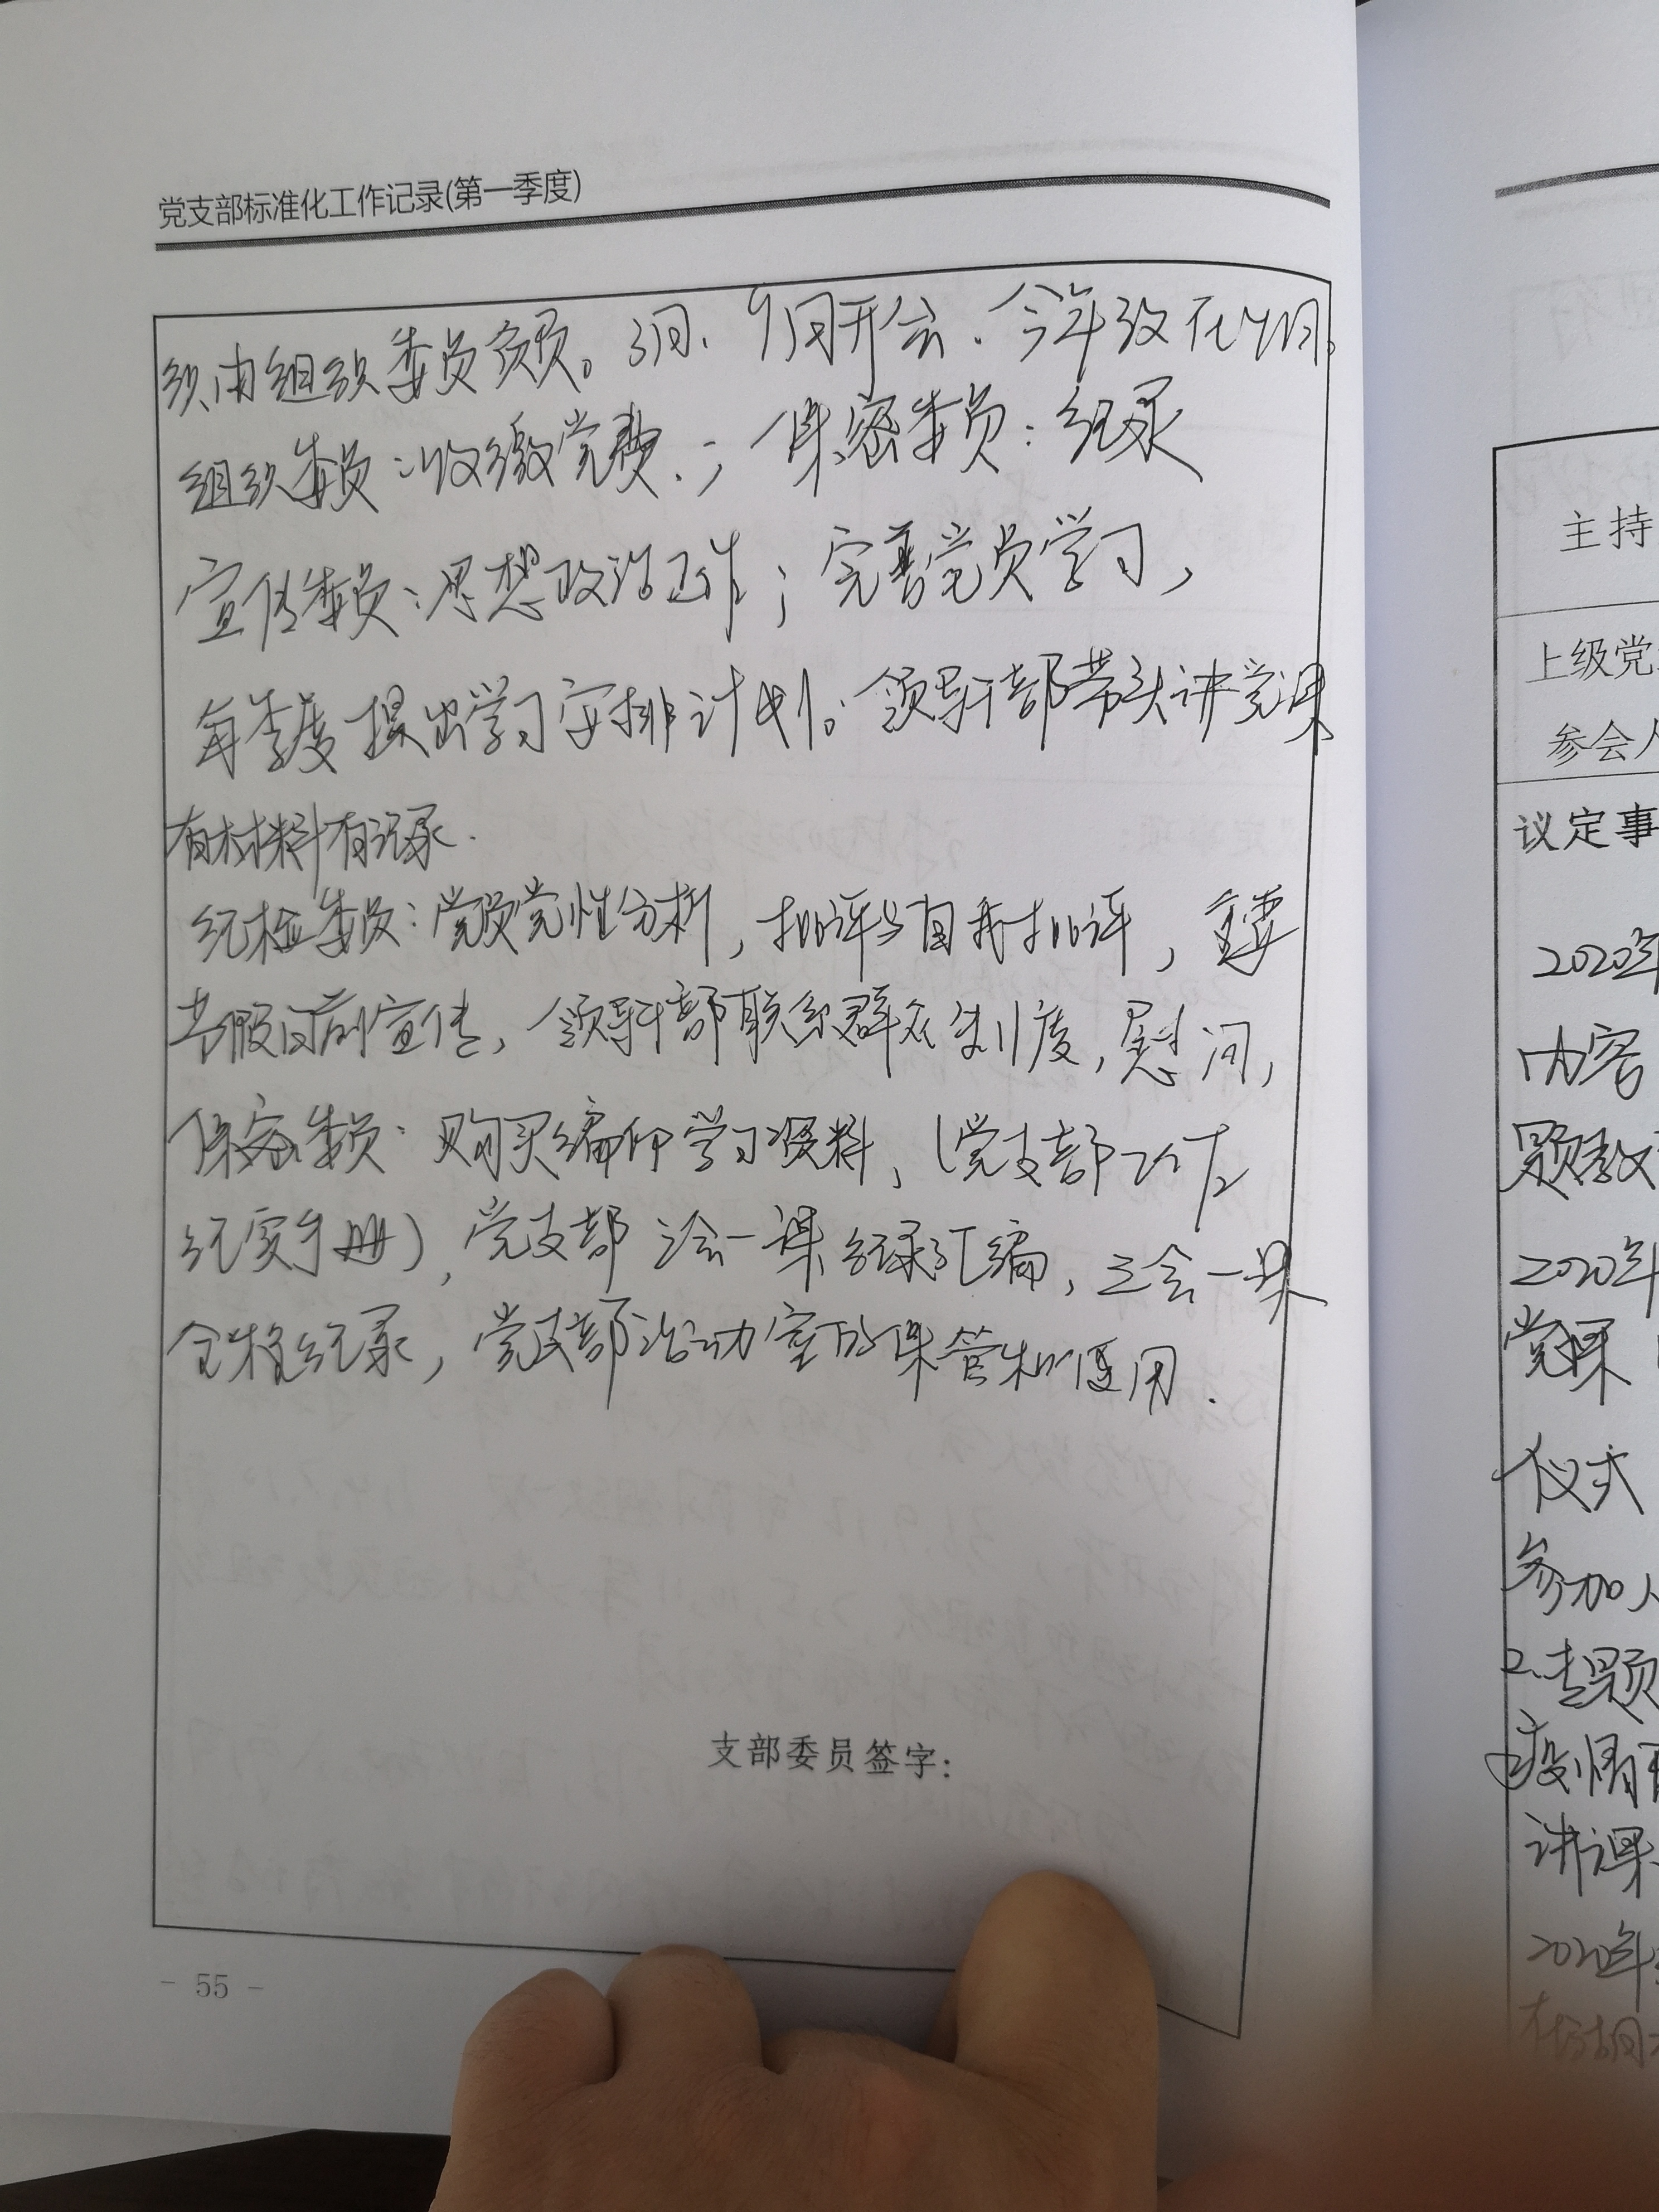 党支部标准化工作记录(第一季度)
织由组织委员负责。3月、9月开会、今年改在4月。
组织委员:收缴党费.;保密委员:纪录
宣传委员:思想政治工作;完善党员学习,
每季度提出学习安排计划。领导干部带头讲党课
有材料有记录.
纪检委员:党员党性分析,批评与自我批评,重要
节假日前宣传,领导干部联系群众制度,慰问,
保密委员:购买编印学习资料,(党支部工作
纪实手册),党支部三会一课纪录汇编,三会一课
全程纪录,党支部活动室的保管和使用.
支部委员签字:
- 55 -
主持
上级党
参会人
议定事
2020年
内容
题教
2020年
党课
仪式
参加人
2.专题
疫情
讲课
2020年